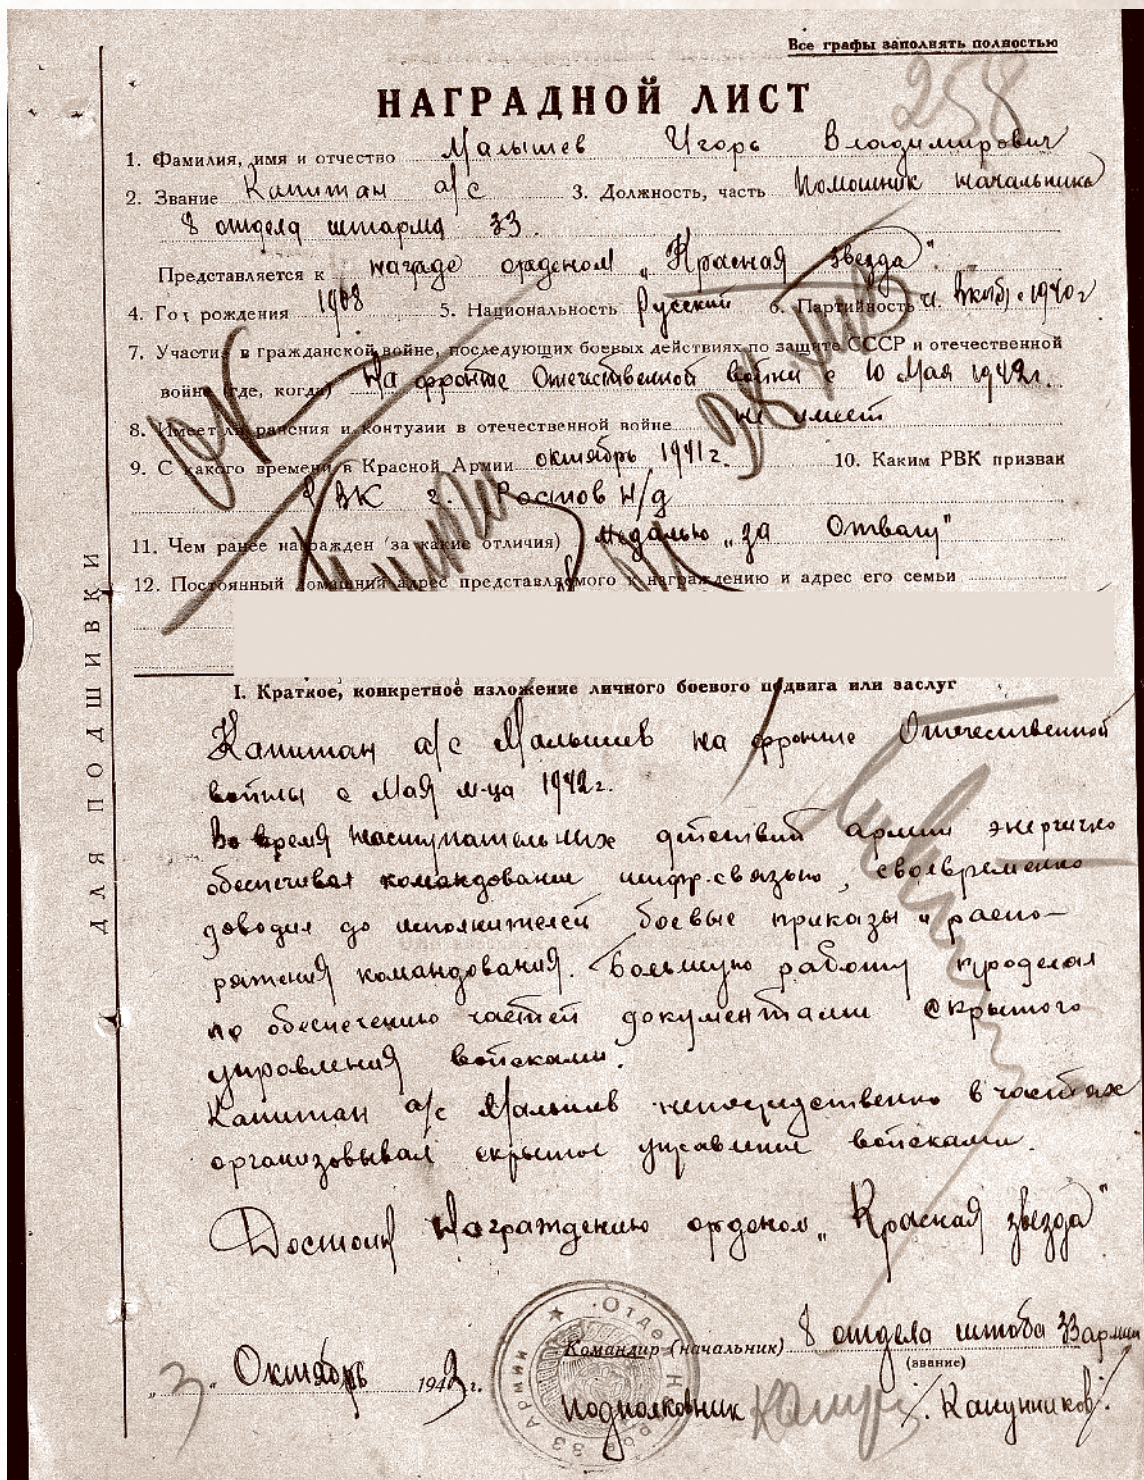 Все графы заполнять полностью
258
НАГРАДНОЙ ЛИСТ
1. Фамилия, имя и отчество Малышев Игорь Владимирович
2. Звание Капитан а/с 3. Должность, часть Помошник начальника
8 отдела штарма 33.
Представляется к награде орденом „Красная звезда"
4. Год рождения 1908 5. Национальность Русский 6. Партийность чл. ВКП(б) с 1940 г
7. Участие в гражданской войне, последующих боевых действиях по защите СССР и отечественной
войне (где, когда) На фронте Отечественной войны с 10 Мая 1942г.
8. Имеет ли ранения и контузии в отечественной войне не имеет
9. С какого времени в Красной Армии октябрь 1941г. 10. Каким РВК призван
РВК г. Ростов н/д
11. Чем ранее награжден (за какие отличия) Медалью „за Отвагу"
12. Постоянный домашний адрес представляемого к награждению и адрес его семьи
ДЛЯ ПОДШИВКИ
I. Краткое, конкретное изложение личного боевого подвига или заслуг
Капитан а/с Малышев на фронте Отечественной
войны с Мая м-ца 1942г.
Во время наступательных действий армии энергично
обеспечивал командование шифр.связью, своевременно
доводил до исполнителей боевые приказы и распо-
ряжения командования. Большую работу проделал
по обеспечению частей документами скрытого
управления войсками.
Капитан а/с Малышев непосредственно в частях
организовывал скрытое управление войсками.
Достоин награждению орденом „Красная звезда"
Командир (начальник) 8 отдела штаба 33 армии
(звание)
„3" Октябрь 1943г.
Подполковник /Капунников/